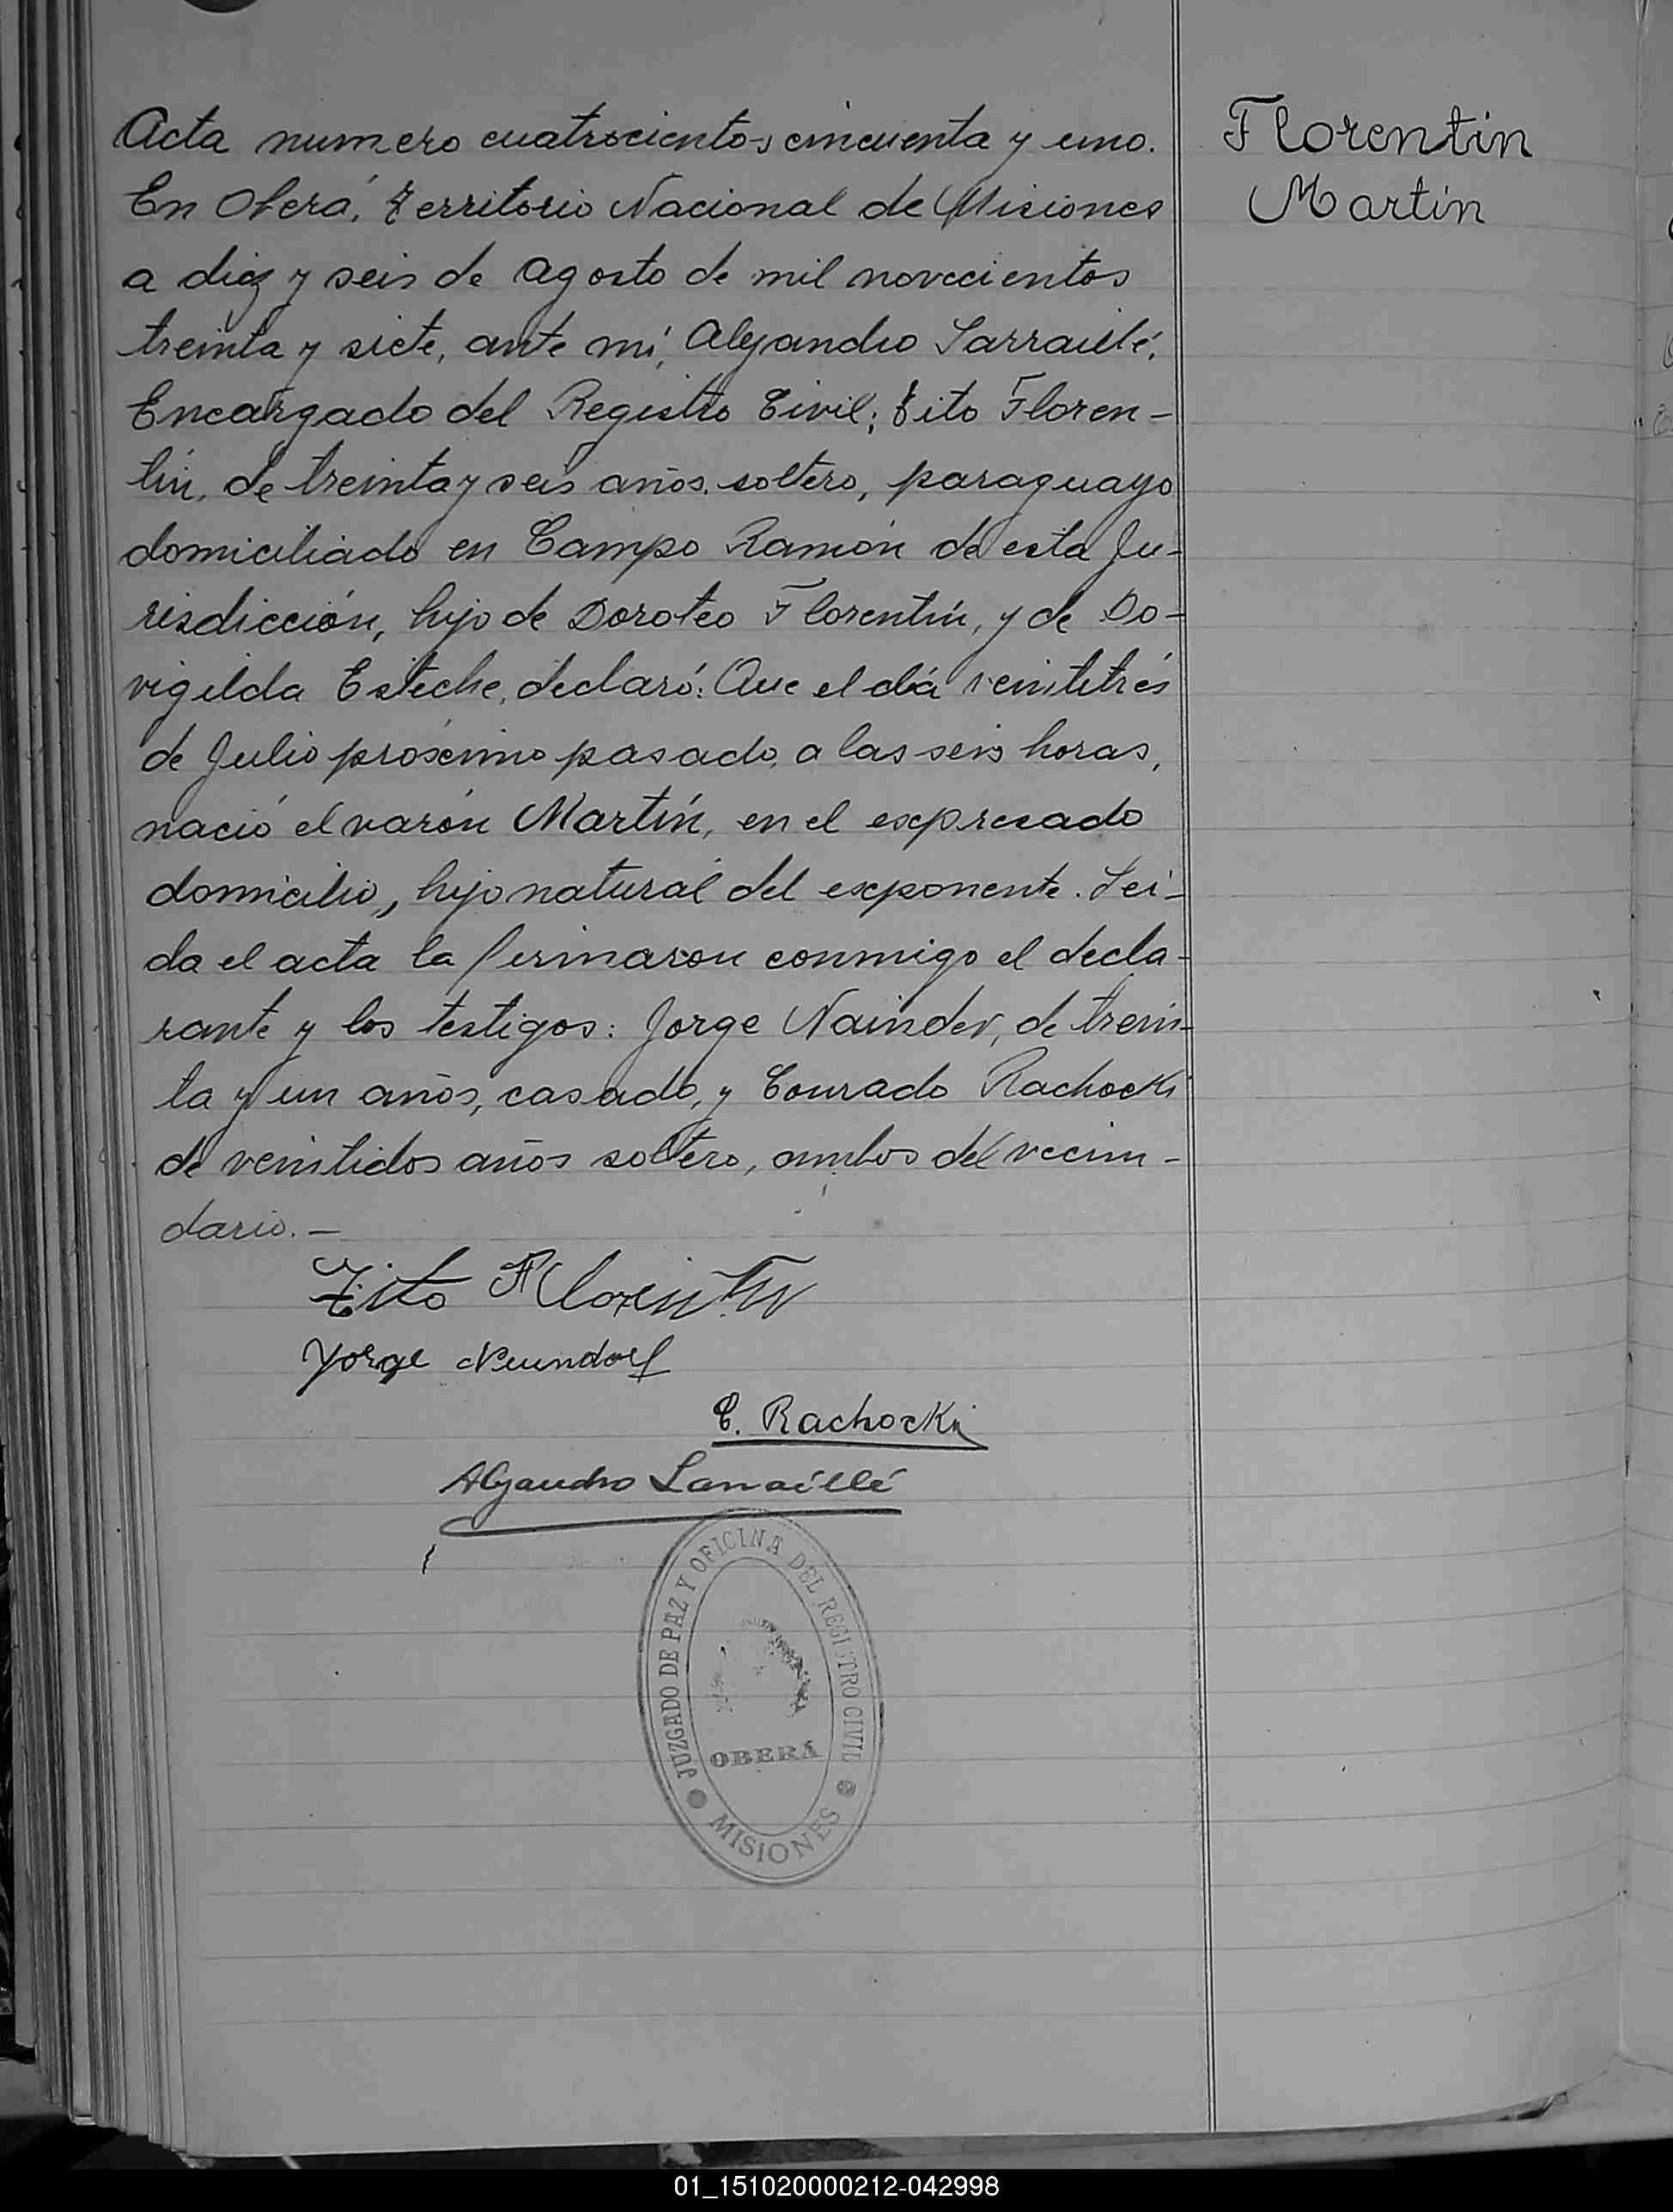 Acta numero cuatrocientos cincuenta y uno.
En Oberá, Territorio Nacional de Misiones
a diez y seis de Agosto de mil novecientos
treinta y siete, ante mí, Alejandro Larraillé,
Encargado del Registro Civil; Tito Floren-
tín, de treinta y seis años, soltero, paraguayo
domiciliado en Campo Ramón de esta Ju-
risdicción, hijo de Doroteo Florentín, y de Do-
vigilda Esteche, declaró: Que el día veintitrés
de Julio próximo pasado, a las seis horas,
nació el varón Martín, en el expresado
domicilio, hijo natural del exponente. Lei-
da el acta la firmaron conmigo el decla-
rante y los testigos: Jorge Nainder, de trein-
ta y un años, casado, y Conrado Rachocki
de veintidos años soltero, ambos del vecin-
dario.-
Florentin
Martín
Tito Florentin
Jorge Neundorf
C. Rachocki
Alejandro Larraillé
JUZGADO DE PAZ Y OFICINA DEL REGISTRO CIVIL
OBERÁ
MISIONES
01_151020000212-042998